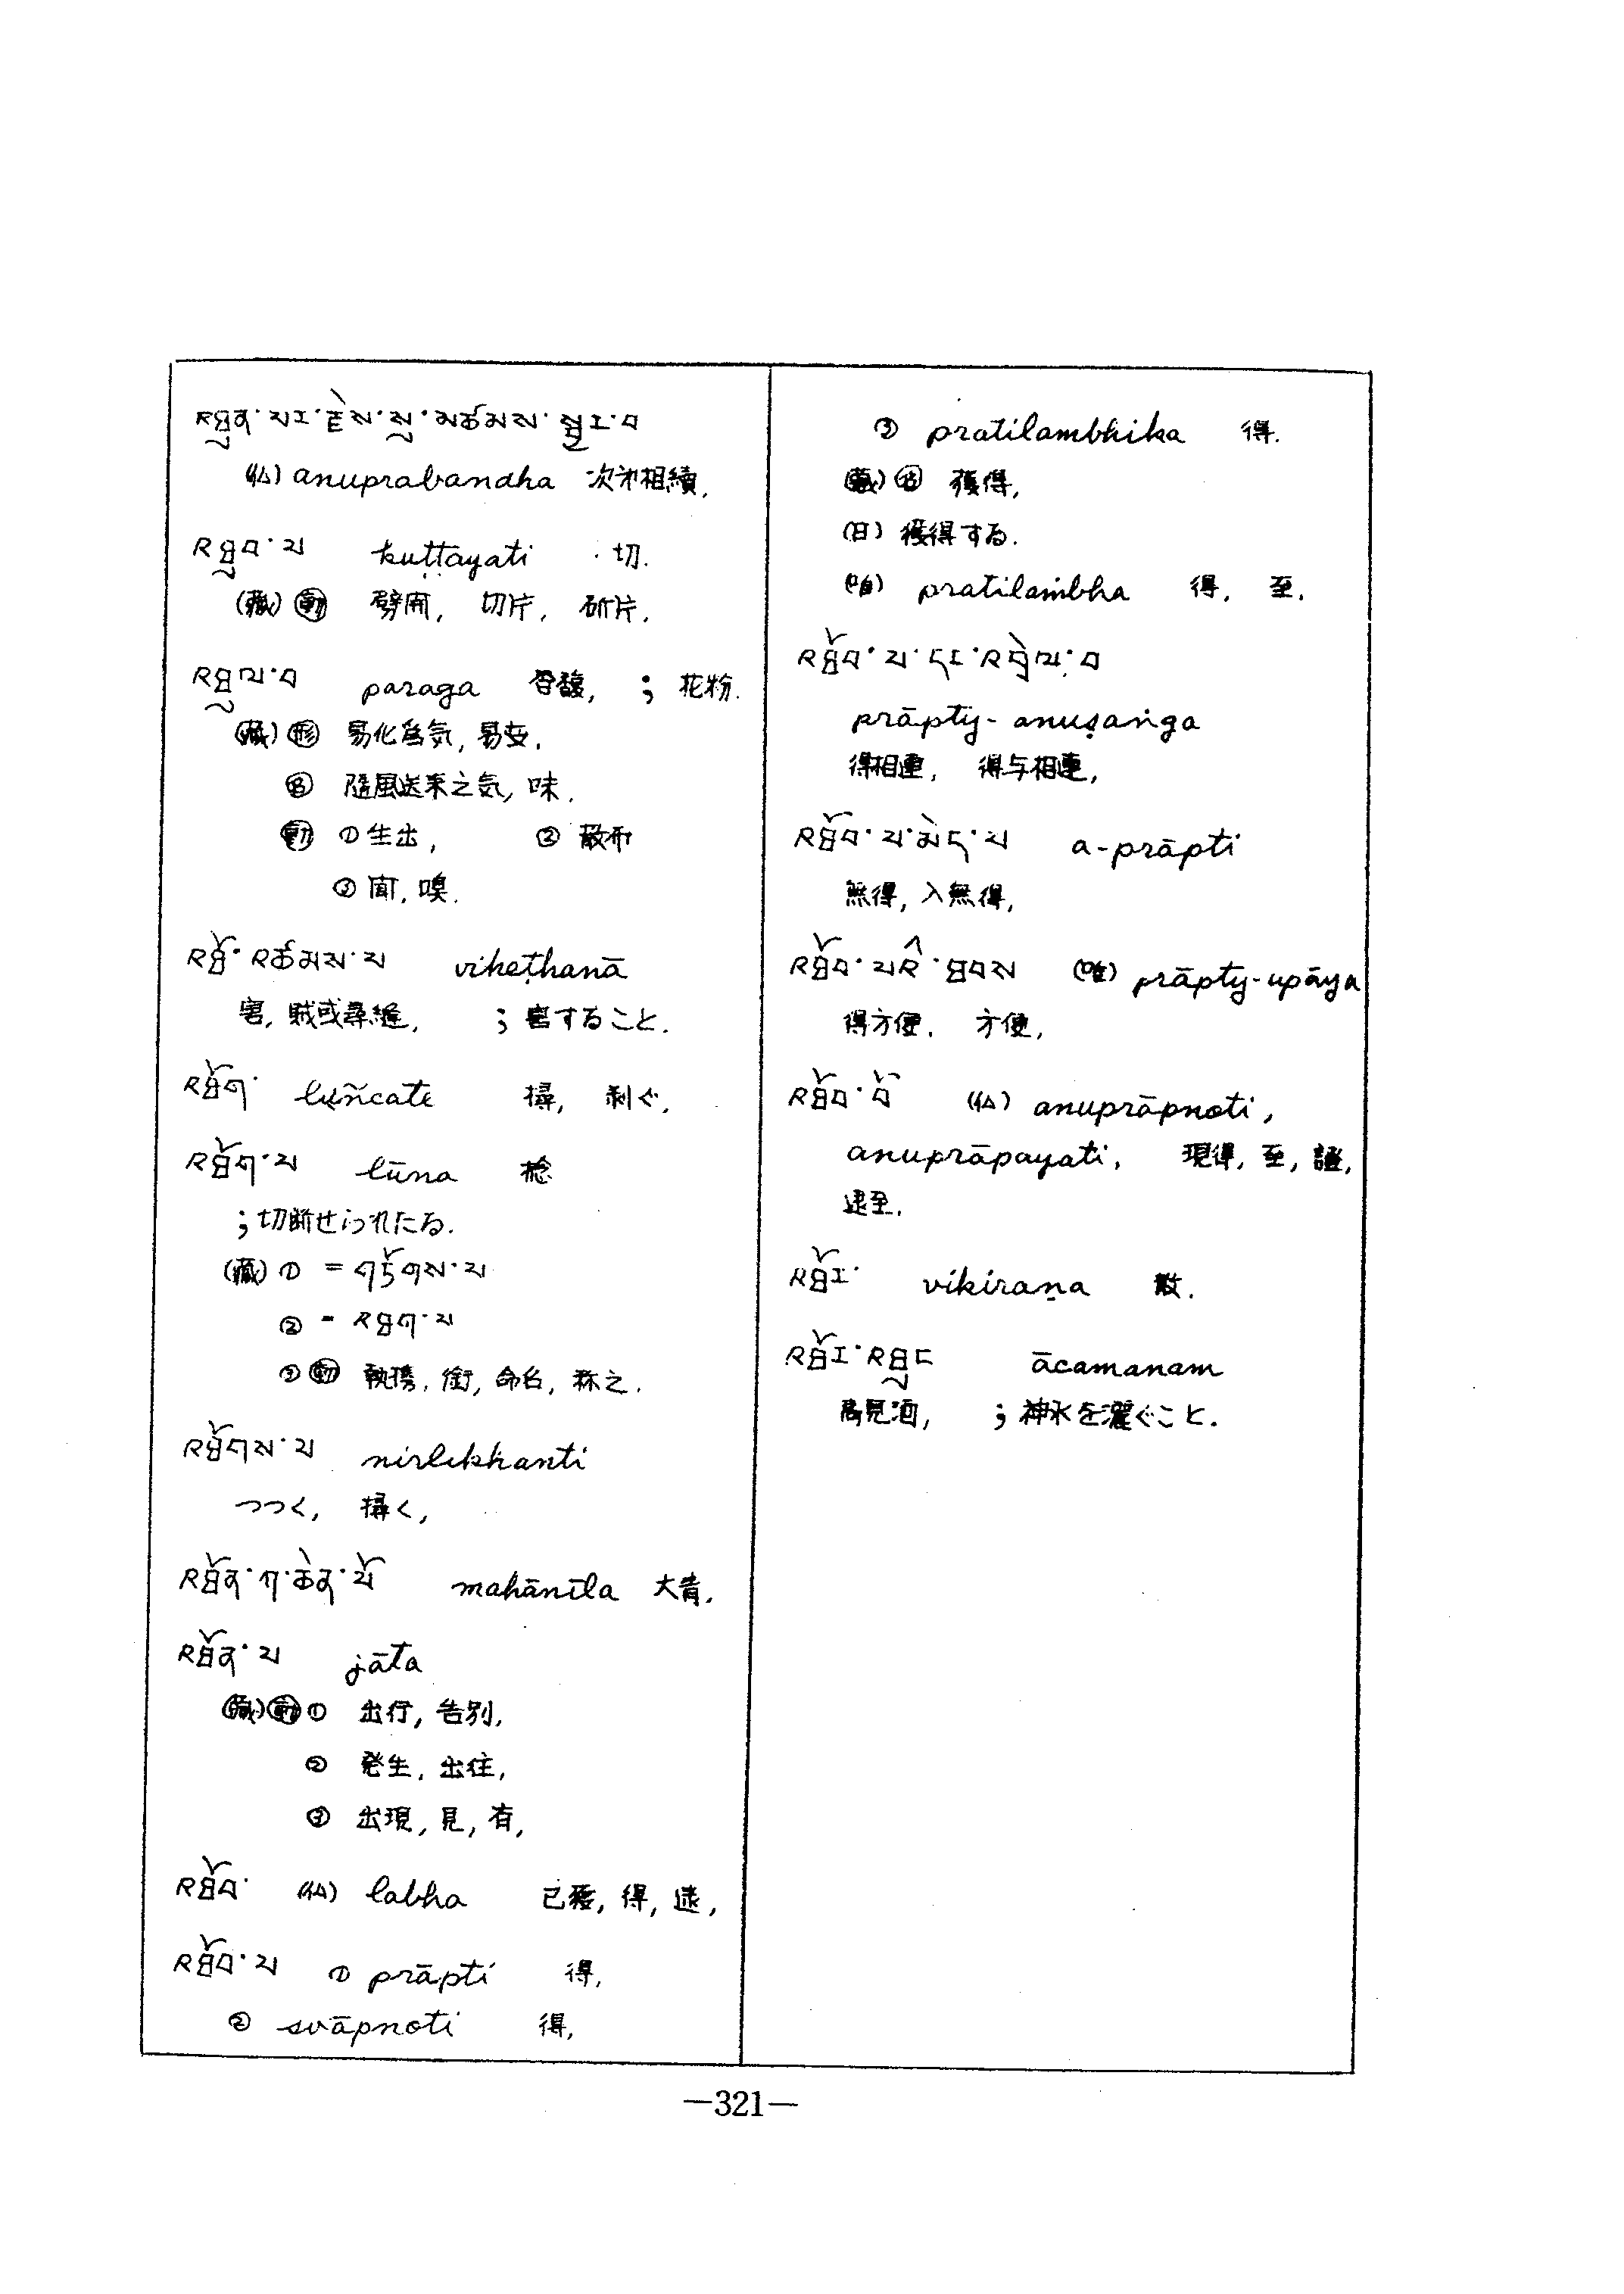 འཐུན་པར་རྗེས་སུ་མཚམས་སྦྱར་བ
(仏) anuprabandha 次第相續,
འཐུབ་པ kuṭṭayati 切.
(藏) 動 劈開, 切片, 斫片,
འཐུལ་བ paraga 香馥, ; 花粉.
(藏) 形 易化為気, 易变,
名 隨風送来之気, 味.
動 ① 生出, ② 散布
③ 聞, 嗅.
འཐོ་འཚམས་པ viheṭhanā
害, 賊或尋縫, ; 害すること.
འཐོག་ luñcate 撏, 剥ぐ,
འཐོག་པ lūna 捻
; 切断せられたる.
(藏) ① = གཏོགས་པ
② = འཐག་པ
③ 動 執携, 銜, 命名, 称之.
འཐོགས་པ nirlikhanti
つつく, 掻く,
འཐོན་ཀ་ཆེན་པོ mahānīla 大青,
འཐོན་པ jāta
(藏) 動 ① 出行, 告別,
② 発生, 出往,
③ 出現, 見, 有,
འཐོབ་ (仏) labha 已獲, 得, 逮,
འཐོབ་པ ① prāpti 得,
② svāpnoti 得,
③ pratilambhika 得.
(藏) 名 獲得,
(日) 獲得する.
(唯) pratilaṁbha 得, 至,
འཐོབ་པ་དང་འབྲེལ་བ
prāpty-anuṣaṅga
得相連, 得与相連,
འཐོབ་པ་མེད་པ a-prāpti
無得, 入無得,
འཐོབ་པའི་ཐབས (唯) prāpty-upāya
得方便, 方便,
འཐོབ་བོ (仏) anuprāpnoti,
anuprāpayati, 現得, 至, 證,
逮至.
འཐོར་ vikiraṇa 散.
འཐོར་འཐུང ācamanam
; 神水を灑ぐこと.
—321—